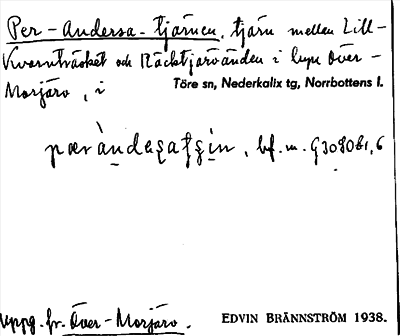 Per-Andersa-tjärnen, tjärn mellan Lill-
Kvarnträsket och Räcktjärvånden i byn Över-
Morjärv, i Töre sn, Nederkalix tg, Norrbottens l.
bf. m. G 3080 b1,6
uppg. fr. Över-Morjärv. EDVIN BRÄNNSTRÖM 1938.